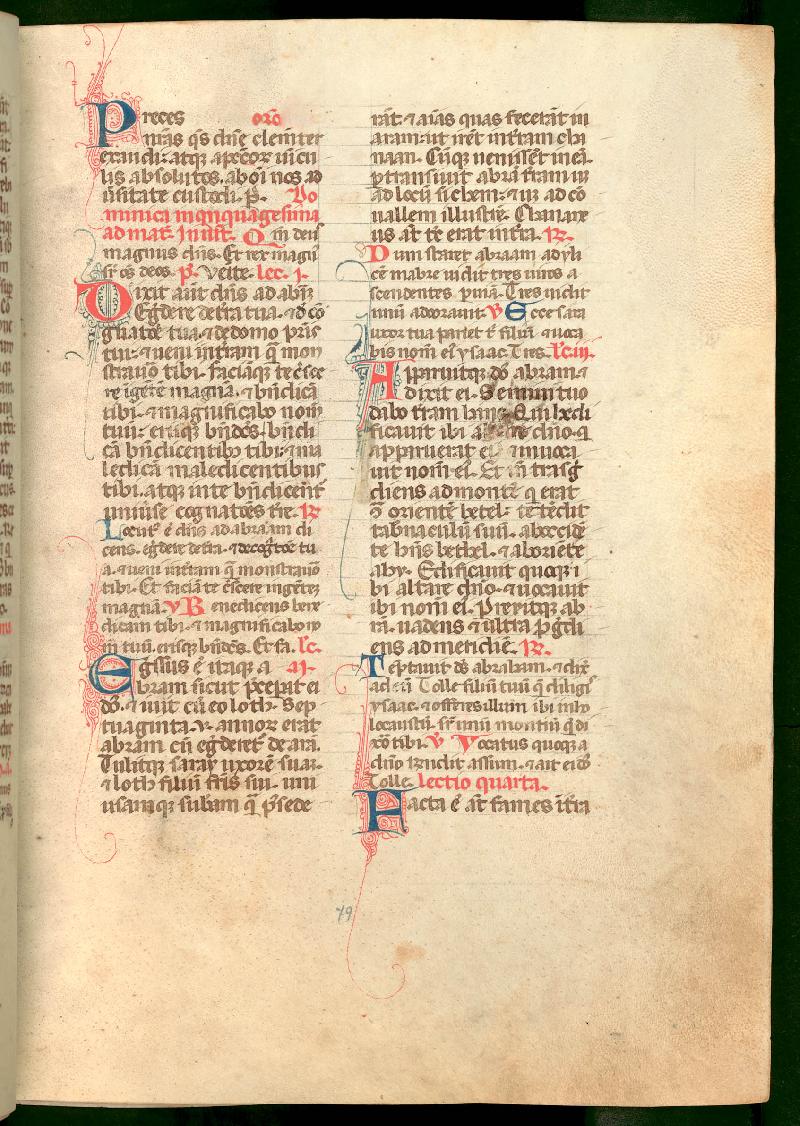 Preces orō
n̄ras q̄s dn̄e clemīter
exaudi: atq̨ a p̄ctōr uīcu
lis absolutos. ab oī nos ad
ūsitate custodi. P̄. Do
minica in quinquagesima
ad mat. Inuit. Qm̄ deus
magnus dn̄s. Et rex magn᷒
sr̄ oēs deos. p̄. Venite. Lec. j.
Dixit aūt dn̄s ad abrā
Egrēdere de tra tua. ⁊ d̄ cō
gnatōe tua. ⁊ de domo pr̄is
tui: ⁊ ueni in tram q̄ mon
strauo tibi. faciāq̨ te c̄sce
re ī gētē magnā. ⁊ bn̄dicā
tibi. ⁊ magnificabo nom̄
tuū: erisq̨ bn̄dc̄s. bn̄di
cā bn̄dicentibȝ tibi: ⁊ ma
ledicā maledicentibus
tibi. atq̨ in te bn̄dicent᷒
uniūse cognatōes tr̄e. ℟
Locut᷒ ē dn̄s ad abraam di
cens. egrēdere de tra. ⁊ de cogtōe tu
a. ⁊ ueni in tram q̄ monstrauo
tibi. Et faciā te c̄scere ī gētem
magnā. ℣ Benedicens bene
dicam tibi. ⁊ magnificabo no
m̄ tuū. erisq̨ bn̄dc̄s. Et fa. lc̄.
Egssus ē itaq̨ a ij.
bram sicut p̄cepat ei
dn̄s. ⁊ iuit cū eo loth. Sep
tuaginta. v. annor erat
abram cū egrēdet᷒ de arā.
Tulitq̨ saray uxorē suā.
⁊ loth filiū fr̄is sui. uni
uersamq̨ sub̄am q̄ p̄sede
rāt ⁊ aīas quas fecerāt in
aram: ut irēt in tram cha
naan. Cūq̨ uenissēt in eā.
ptransiuit abrā tram usq̨
ad locū sichem: ⁊ usq̨ ad cō
uallem illustrē. Chanane
us aūt tc̄ erat in tra. ℟.
Dum staret abraam ad yli
cē mabre uidit tres uiros a
scendentes p uiā. Tres uidit
unū adorauit. ℣ Ecce sara
uxor tua pariet t̄ filiū. ⁊ uoca
bis nom̄ ei᷒ ysaac. Tres. lc̄. iij.
Apparuitq̨ dn̄s abram. ⁊
dixit ei. Semini tuo
dabo tram hanc. Qui edi
ficauit ibi altare dn̄o. q
apparuerat ei. ⁊ inuoca
uit nom̄ ei᷒. Et in trasg
diens ad montē q erat
ɔ̄ orientē betel: tetēdit
tab̄naculū suū. ab occidē
te hn̄s bethel. ⁊ ab oriēte
ahy. Edificauit quoq̨ i
bi altare dn̄o. ⁊ uocauit
ibi nom̄ ei᷒. Perrexitq̨ ab
rā. uadens ⁊ ultra p̄gdi
ens ad meridiē. ℟.
Teptauit ds̄ abraham. ⁊ dix̄
ad eū Tolle filiū tuū q̄ diligis
ysaac. ⁊ offeres illum ibi in ho
locaustū. sr̄ unū montiū q̄ di
xo tibi. ℣ Vocatus quoq̨ a
dn̄o rn̄dit assum. ⁊ ait ei ds̄
Tolle. Lectio quarta.
Facta ē aūt fames ī tra
79